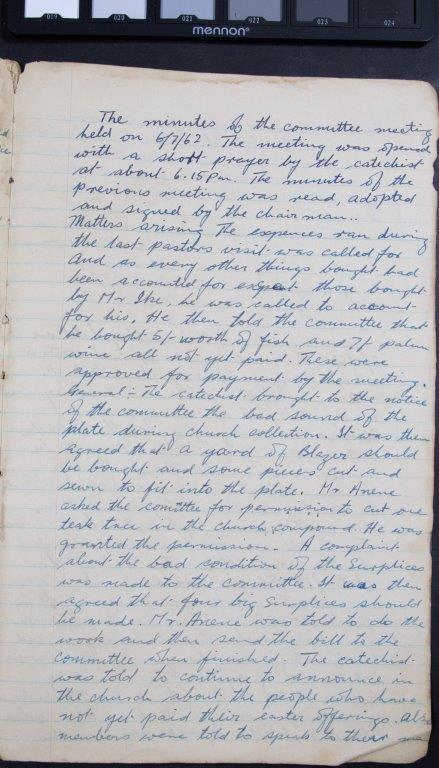 019 020 021 022 023 024
mennon
The minutes of the committee meeting
held on 6/7/62. The meeting was opened
with a short prayer by the catechist
at about 6.15pm. The minutes of the
previous meeting was read, adopted
and signed by the chairman..
Matters arising The expences ran during
the last pastors visit was called for
And as every other things bought had
been accounted for except those bought
by Mr Ike, he was called to account
for his. He then told the committee that
he bought 5/- worth of fish and 7/- palm
wine all not yet paid. These were
approved for payment by the meeting.
General:- The catechist brought to the notice
of the committee the bad sound of the
plate during church collection. It was then
agreed that a yard of Blazer should
be bought and some pieces cut and
sewn to fit into the plate. Mr. Anene
asked the comittee for permission to cut one
teak tree in the church compound. He was
granted the permission. A complaint
about the bad condition of the Surplices
was made to the committee. It was then
agreed that four big Surplices should
be made. Mr. Anene was told to do the
work and then send the bill to the
committee when finished. The catechist
was told to continue to announce in
the church about the people who have
not yet paid their easter offerings. Also
members were told to speak to their